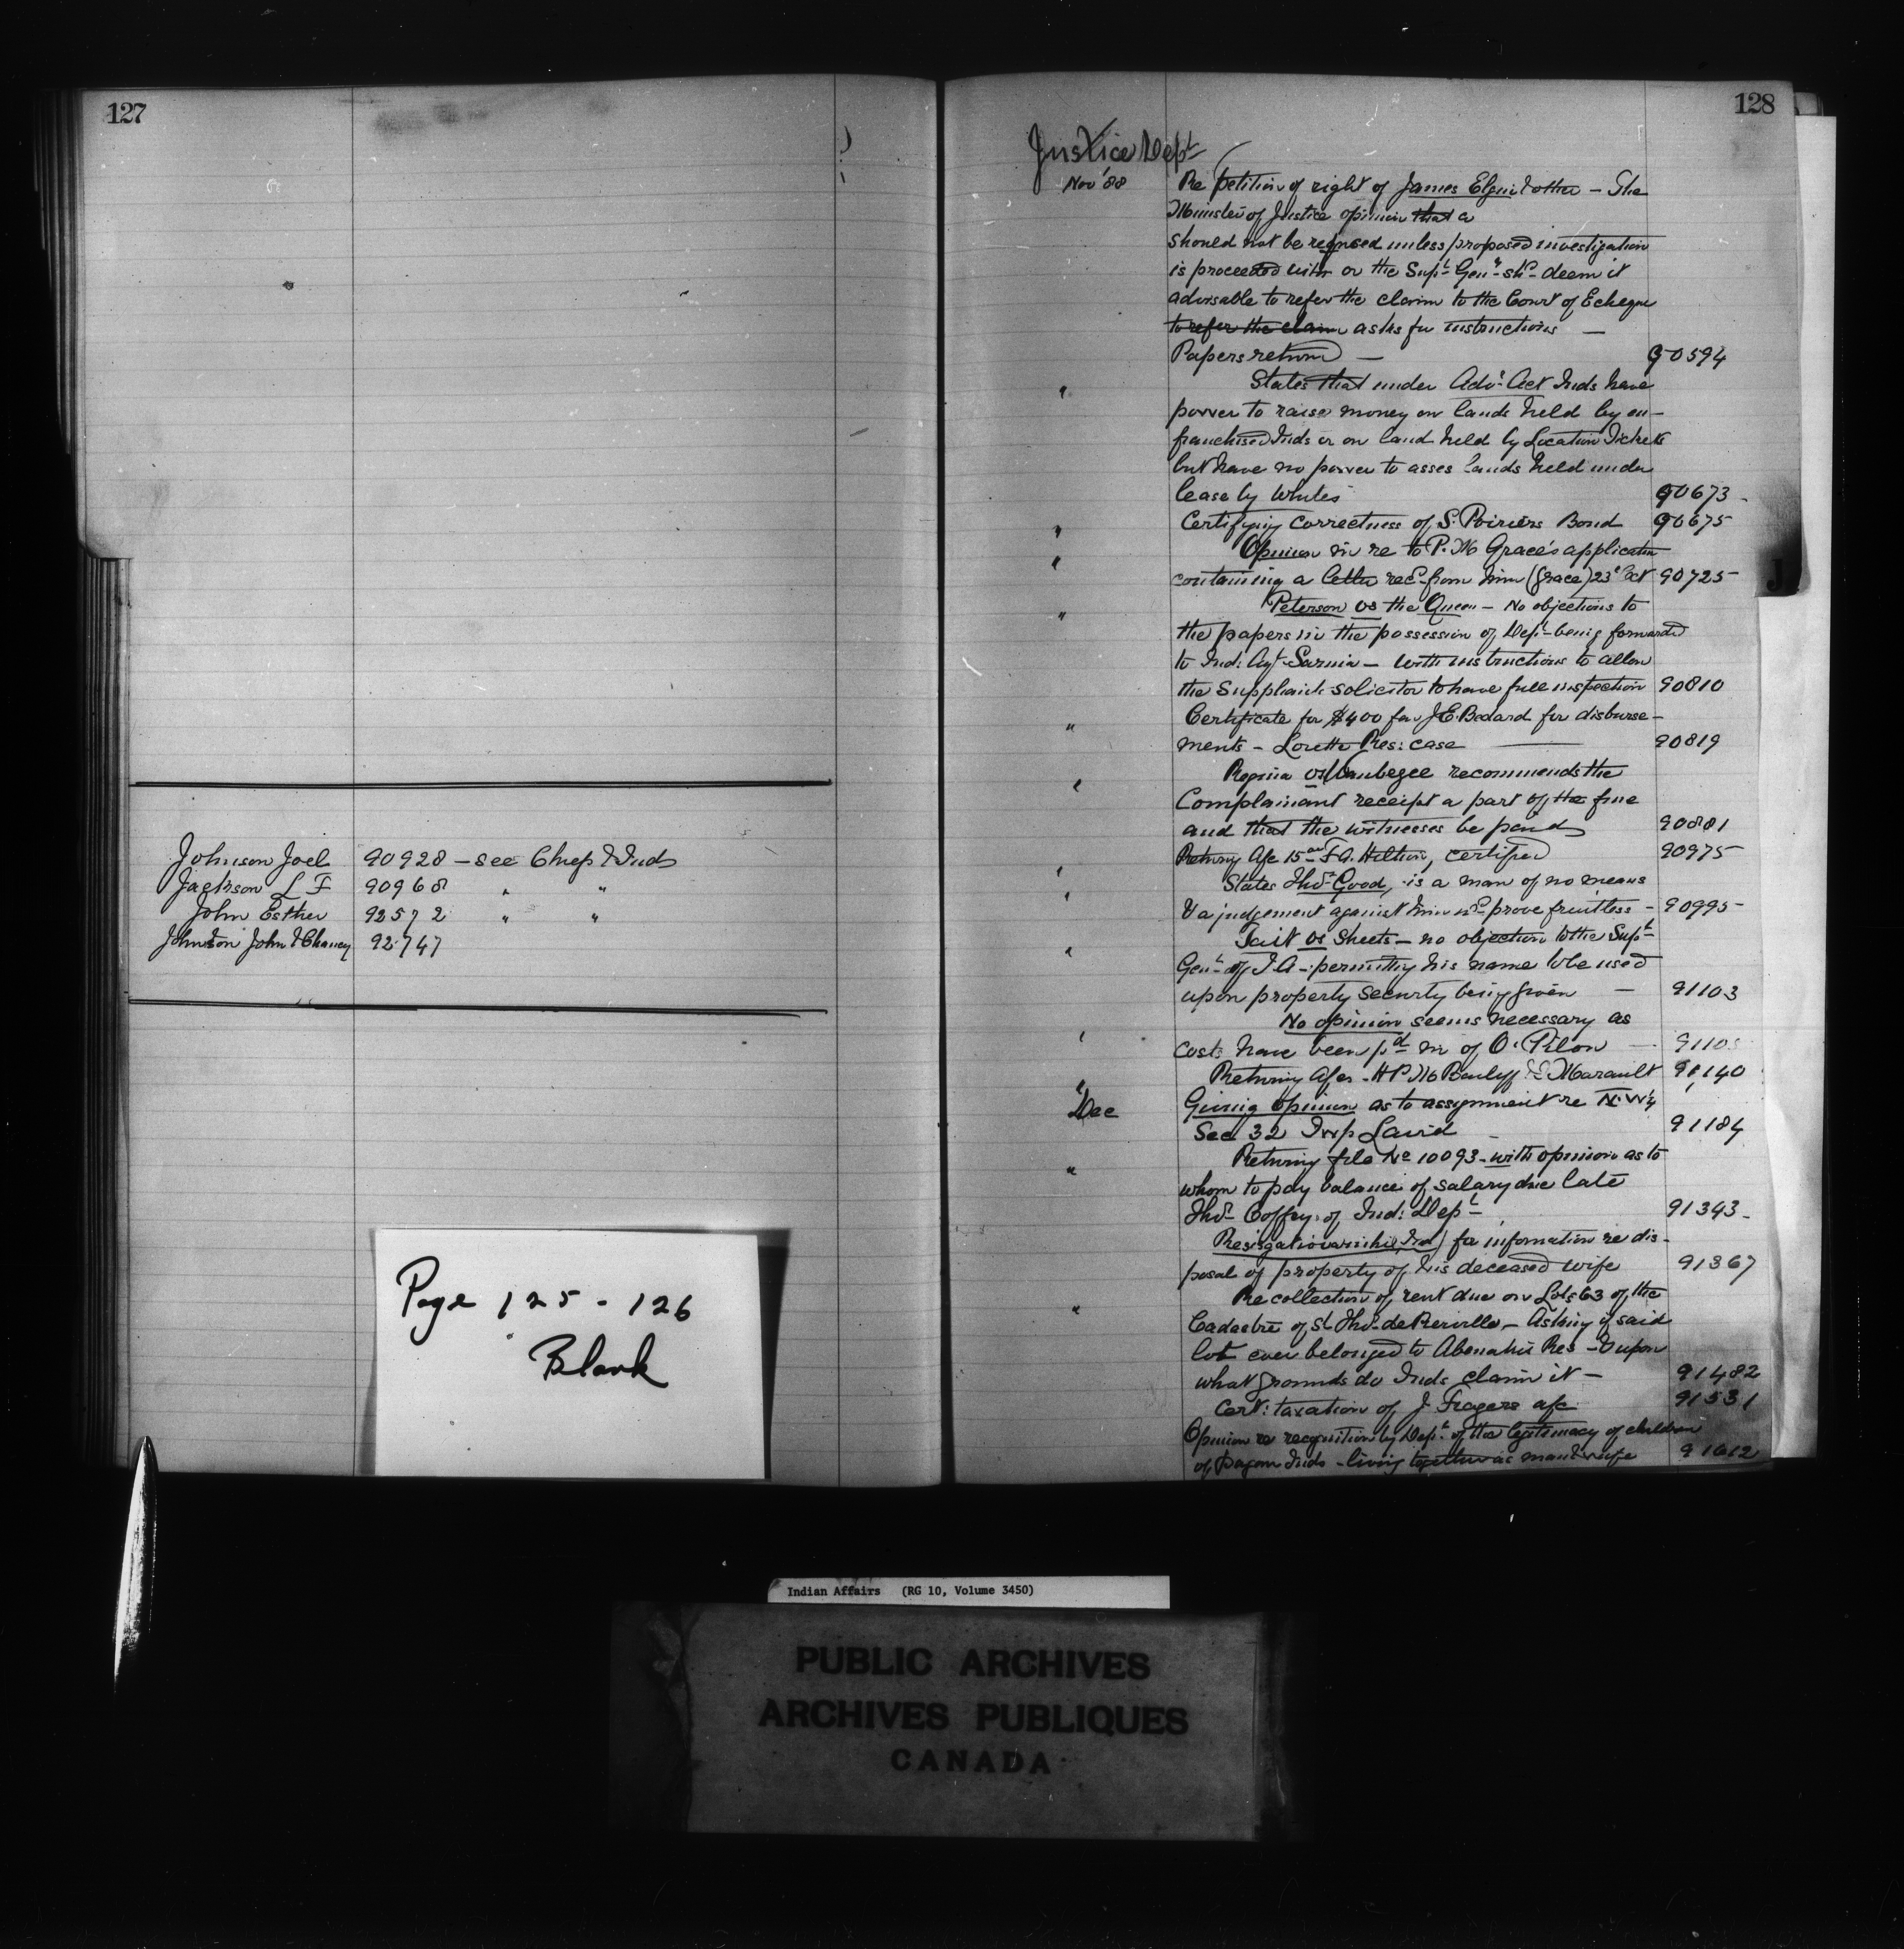 127
Johnson Joel 90928 - see Chiefs & Inds
Jackson L F 90968 " "
John Esther 92572 " "
Johnston John & Chancy 92747
Page 125 - 126
Blank
128
Justice Dept
Nov '88 Re petition of right of James Elgin & other - The
Minister of Justice opinion that a
should not be refused unless proposed investigation
is proceeded with or the Supt Genl shd deem it
advisable to refer the claim to the Court of Echequr
to refer the claim asks for instructions -
Papers returnd - 90594
" States that under Adv: Act Inds have
power to raise money on lands held by en-
franchised Inds or on land held by Location Tickets
but have no power to asses lands held under
lease by Whites 90673 -
" Certifying correctness of S. Poiriers Bond 90675
" Opinion in re to P. M Grace's application
containing a letter recd from him (Grace) 23d Oct 90725
" Peterson vs the Queen - No objections to
the papers in the possession of Dept being forwarded
to Ind: Agt Sarnia - with instructions to allow
the Suppliants solicitor to have full inspection 90810
" Certificate for $400 for J.E. Bedard for disburse-
ments - Lorette Res: case 90819
" Regina vs Waubegee recommends the
Complainant receipt a part of the fine
and that the witnesses be paid 90881
" Returng A/c 15 F A. Hilton, certified 90975
" States Thos Good, is a man of no means
& a judgement against him wd prove fruitless - 90995
" Tait vs Sheets - no objection to the Supt
Genl of I.A - permitting his name to be used
upon property security being given - 91103
" No opinion seems necessary as
costs have been pd in of O. Pilon - 9110
" Returning A/cs - H P. M Bailiff & Marault 91140
Dec Giving opinion as to assignment re N.W¼
Sec 32 Twp Laird - 91184
" Returning file No 10093 - with opinion as to
whom to pay balance of salary due late
Thos Coffey of Ind: Dept 91343 -
for information re dis-
posal of property of his deceased wife 91367
" Re collection of rent due on Lots 63 of the
Cadastre of St Thos de Pierville - Asking if said
lot ever belonged to Abenakis Res - & upon
what grounds do Inds claim it - 91482
Cert: taxation of J. Fragers a/c 91531
Opinion re recognition by Dept of the legitimacy of children
of Pagan Inds - living together as man & wife 91612
J
Indian Affairs (RG 10, Volume 3450)
PUBLIC ARCHIVES
ARCHIVES PUBLIQUES
CANADA